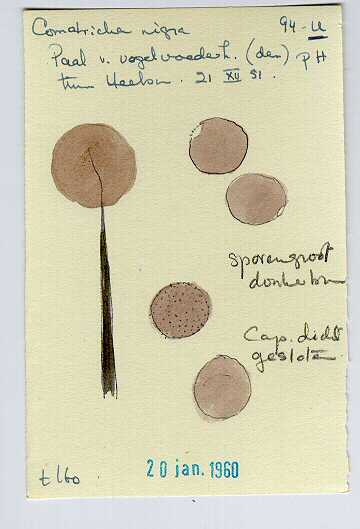 Comatricha nigra 94-U
Paal v. vogelvoederh. (den) PH
21 XII 51.
Sporengroot
donkerbrn
Cap. dicht
gesloten
t/60
20 jan. 1960